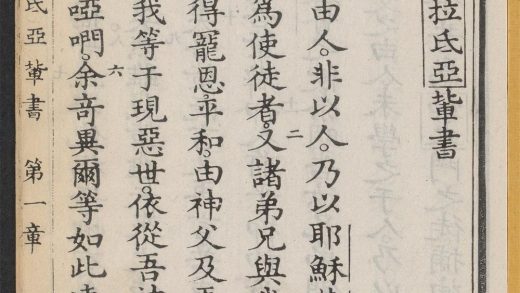 拉氏亞輩書
由人。非以人。乃以耶穌
為使徒者。二又諸弟兄與
得寵恩。平和。由神父及
我等于現惡世。依從吾
啞。六余竒異爾等如此
氏亞輩書 第一章